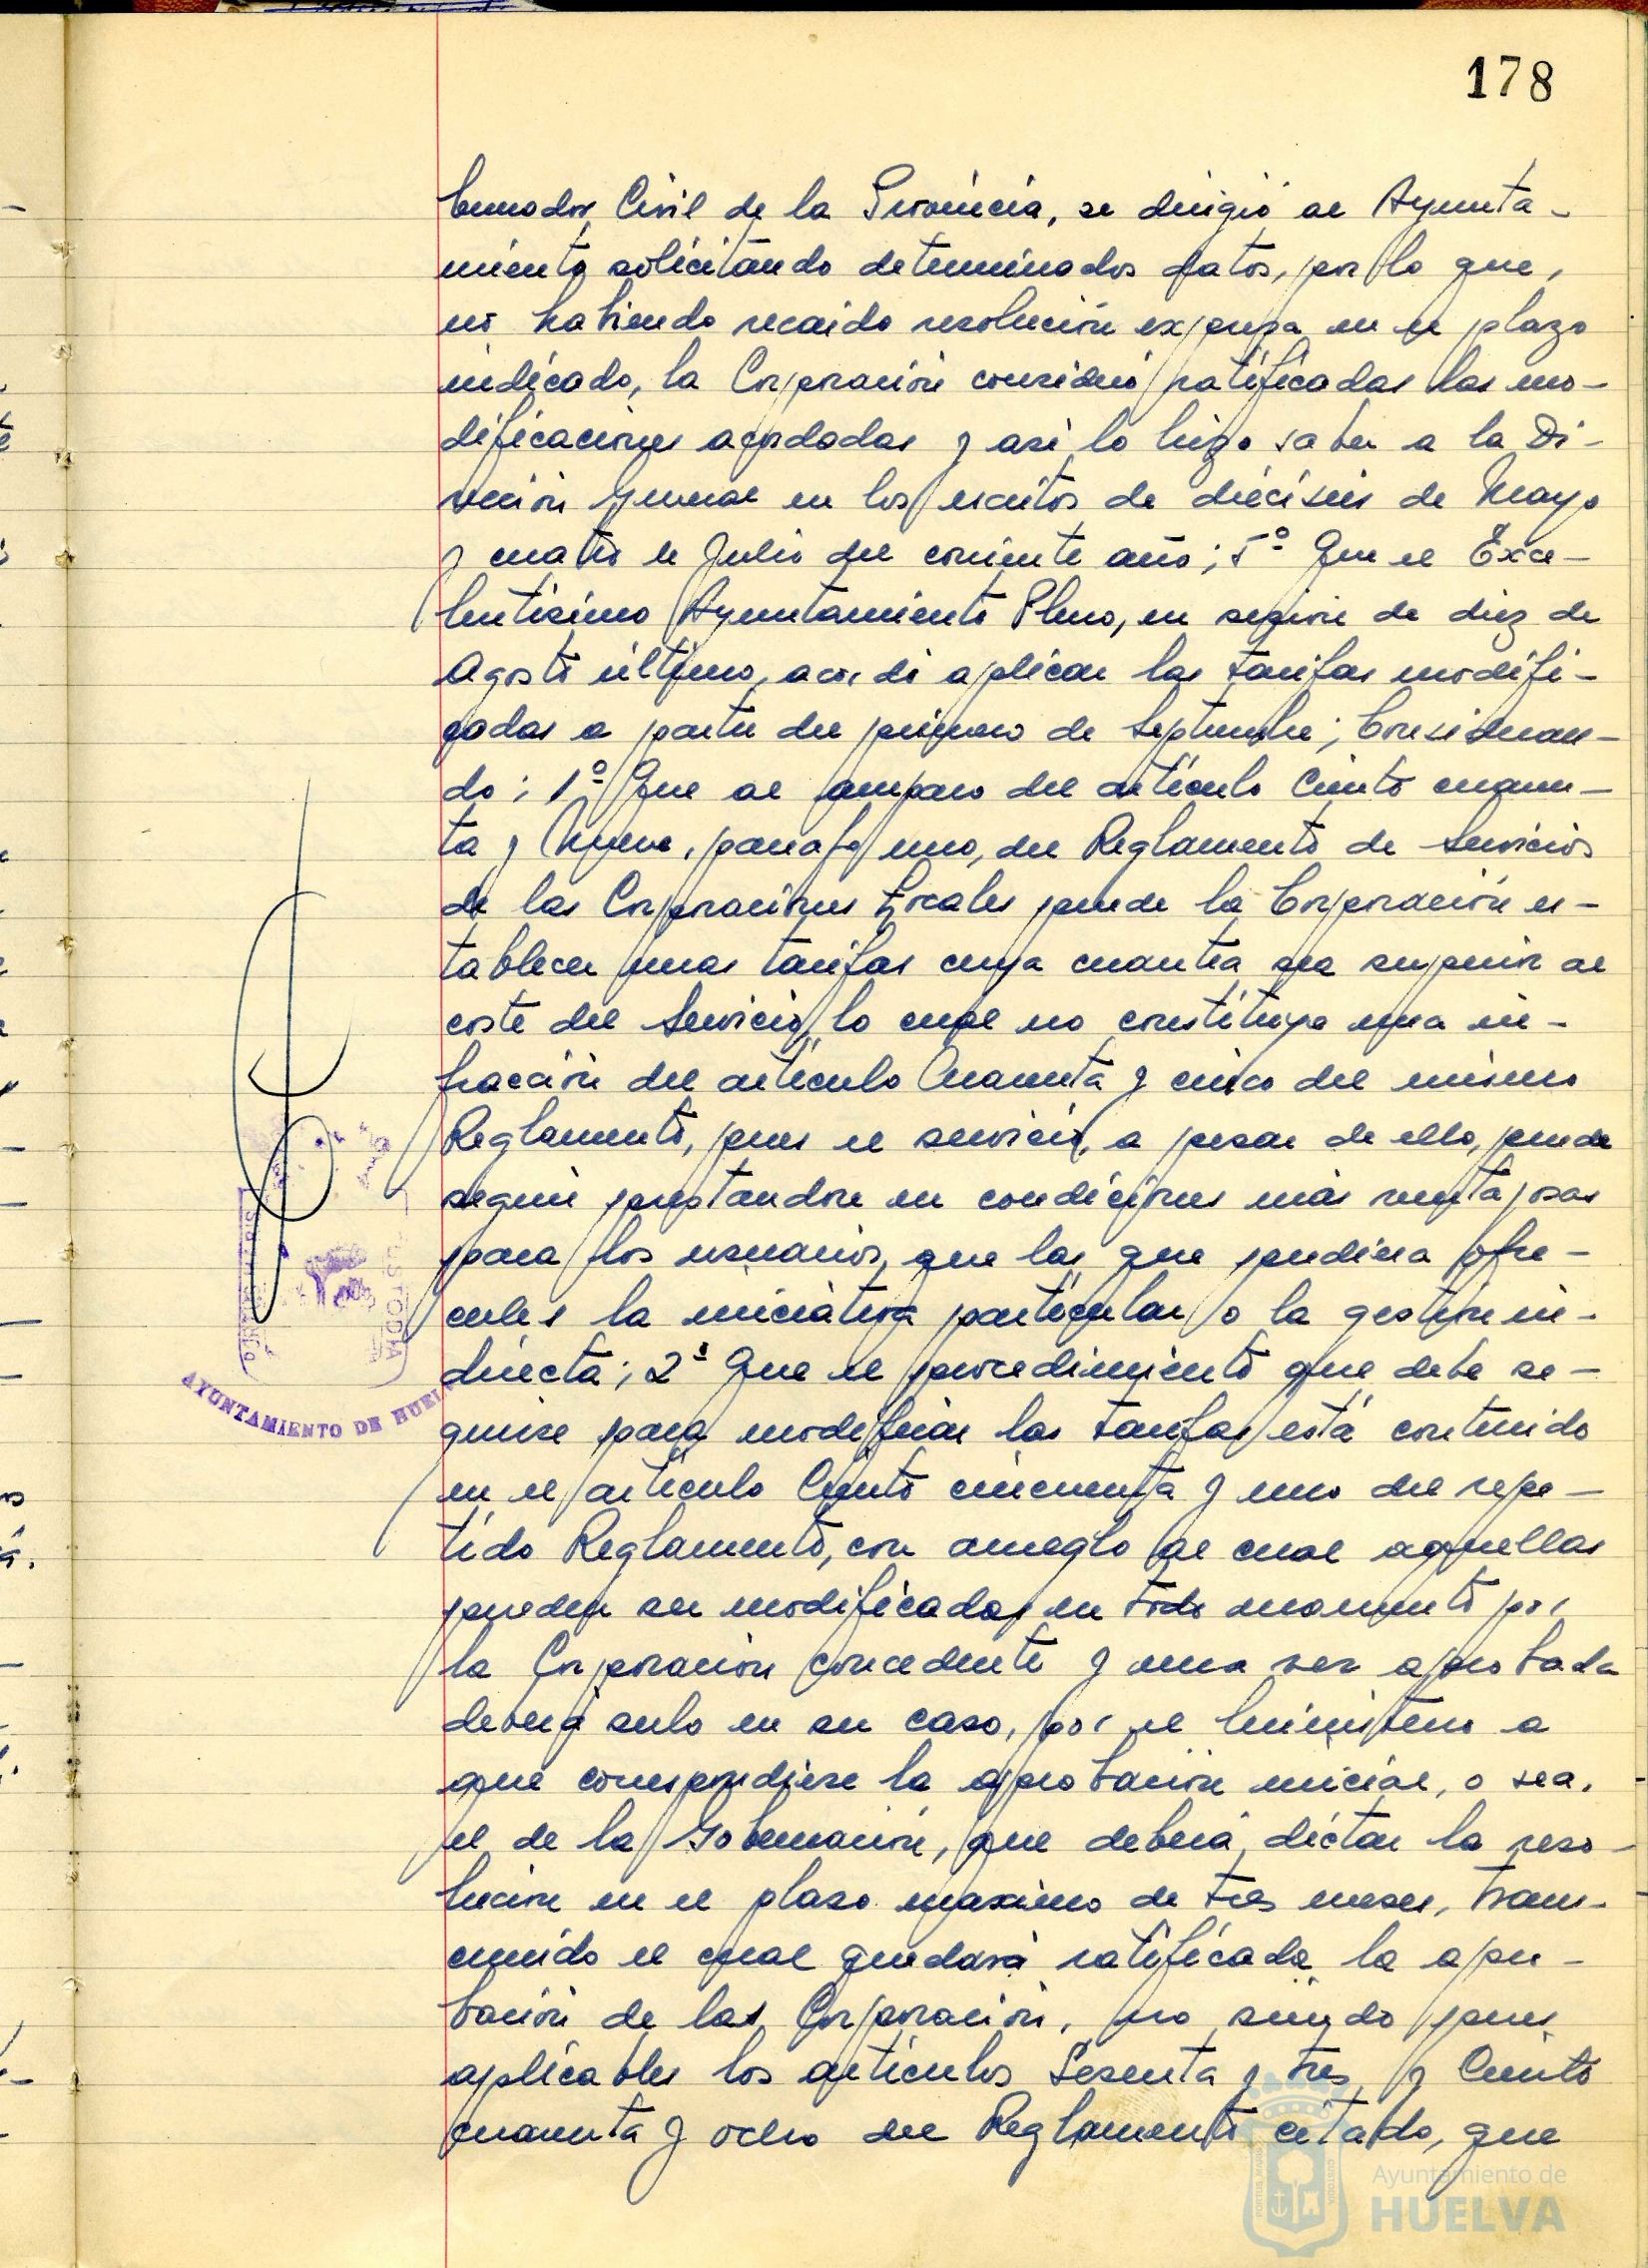 178
bernador Civil de la Provincia, se dirigió al Ayunta-
miento solicitando determinados datos, por lo que,
no habiendo recaido resolución expresa en el plazo
indicado, la Corporación consideró ratificadas las mo-
dificaciones acordadas y asi lo hizo saber a la Di-
rección General en los escritos de diéciseis de Mayo
y cuatro de Julio del corriente año; 5º Que el Exce-
lentísimo Ayuntamiento Pleno, en sesión de diez de
Agosto último, acordó aplicar las tarifas modifi-
cadas a partir del primero de Septiembre; Consideran-
do: 1º Que al amparo del artículo Ciento cuaren-
ta y Nueve, parrafo uno, del Reglamento de Servicios
de las Corporaciones Locales puede la Corporación es-
tablecer unas tarifas cuya cuantía sea superior al
coste del Servicio, lo cual no constituye una in-
fracción del artículo Cuarenta y cinco del mismo
Reglamento, pues el servicio, a pesar de ello, puede
seguir prestandose en condiciones más ventajosas
para los usuarios, que las que pudiera ofre-
cerles la iniciativa particular o la gestión in-
directa; 2º Que el procedimiento que debe se-
guirse para modificar las tarifas está contenido
en el artículo Ciento cincuenta y uno del repe-
tido Reglamento, con arreglo al cual aquellas
pueden ser modificadas en todo momento por
la Corporación concedente y una vez aprobada
deberá serlo en su caso, por el Ministerio a
que correspondiese la aprobación inicial, o sea,
el de la Gobernación, que deberá dictar la reso-
lución en el plazo máximo de tres meses, trans-
currido el cual quedará ratificada la apro-
bación de las Corporación, no siendo pues
aplicables los artículos Sesenta y tres y Ciento
cuarenta y ocho del Reglamento citado, que
AYUNTAMIENTO DE HUELVA
CUSTODIA
Ayuntamiento de
HUELVA